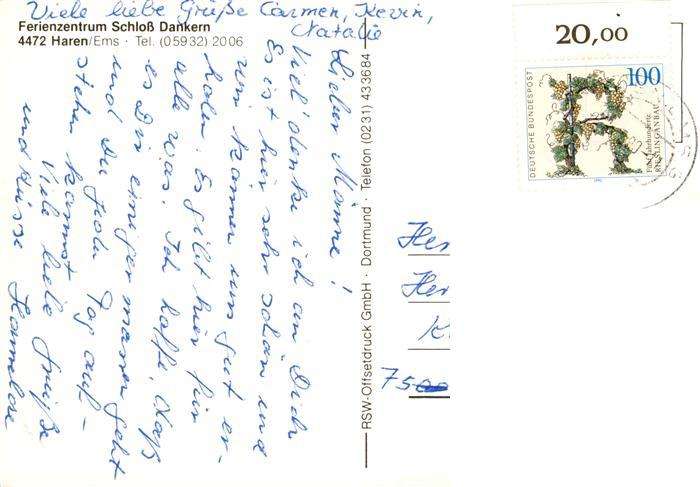 Viele liebe Grüße Carmen, Kevin,
Natalie
Ferienzentrum Schloß Dankern
4472 Haren/Ems · Tel. (05932) 2006
Lieber Männe!
Viel denke ich an Dich
Es ist hier sehr schön und
wir können uns gut er-
holen. Es gibt hier für
alle was. Ich hoffe, daß
es Dir einigermassen geht
und Du jeden Tag auf-
stehen kannst
Viele liebe Grüße
und Küsse Hannelore
RSW-Offsetdruck GmbH · Dortmund · Telefon (0231) 433684
20,00
100
DEUTSCHE BUNDESPOST
Fünf Jahrhunderte
RIESLINGANBAU
Her
Her
K
75